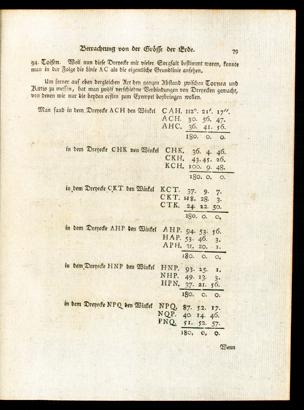 Betrachtung von der Grösse der Erde. 79
94. Toisen. Weil nun diese Dreyecke mit vieler Sorgfalt bestimmt waren, konnte
man in der Folge die Linie AC als die eigentliche Grundlinie ansehen.
Um ferner auf eben dergleichen Art den ganzen Abstand zwischen Tornea und
Kittis zu messen, hat man zwölf verschiedene Verbindungen von Dreyecken gemacht,
von denen wir nur die beyden ersten zum Exempel beybringen wollen.
Man fand in dem Dreyecke ACH den Winkel CAH. 112°. 21'. 17''.
ACH. 30. 56. 47.
AHC. 36. 41. 56.
180. 0. 0.
in dem Dreyecke CHK den Winkel CHK. 36. 4. 46.
CKH. 43. 45. 26.
KCH. 100. 9. 48.
180. 0. 0.
in dem Dreyecke CKT den Winkel KCT. 37. 9. 7.
CKT. 118. 28. 3.
CTK. 24. 22. 50.
180. 0. 0.
in dem Dreyecke AHP den Winkel AHP. 94. 53. 56.
HAP. 53. 46. 3.
APH. 31. 20. 1.
180. 0. 0.
in dem Dreyecke HNP den Winkel HNP. 93. 25. 1.
NHP. 49. 13. 3.
HPN. 37. 21. 56.
180. 0. 0.
in dem Dreyecke NPQ den Winkel NPQ. 87. 52. 17.
NQP. 40. 14. 46.
PNQ. 51. 52. 57.
180. 0. 0.
Wann